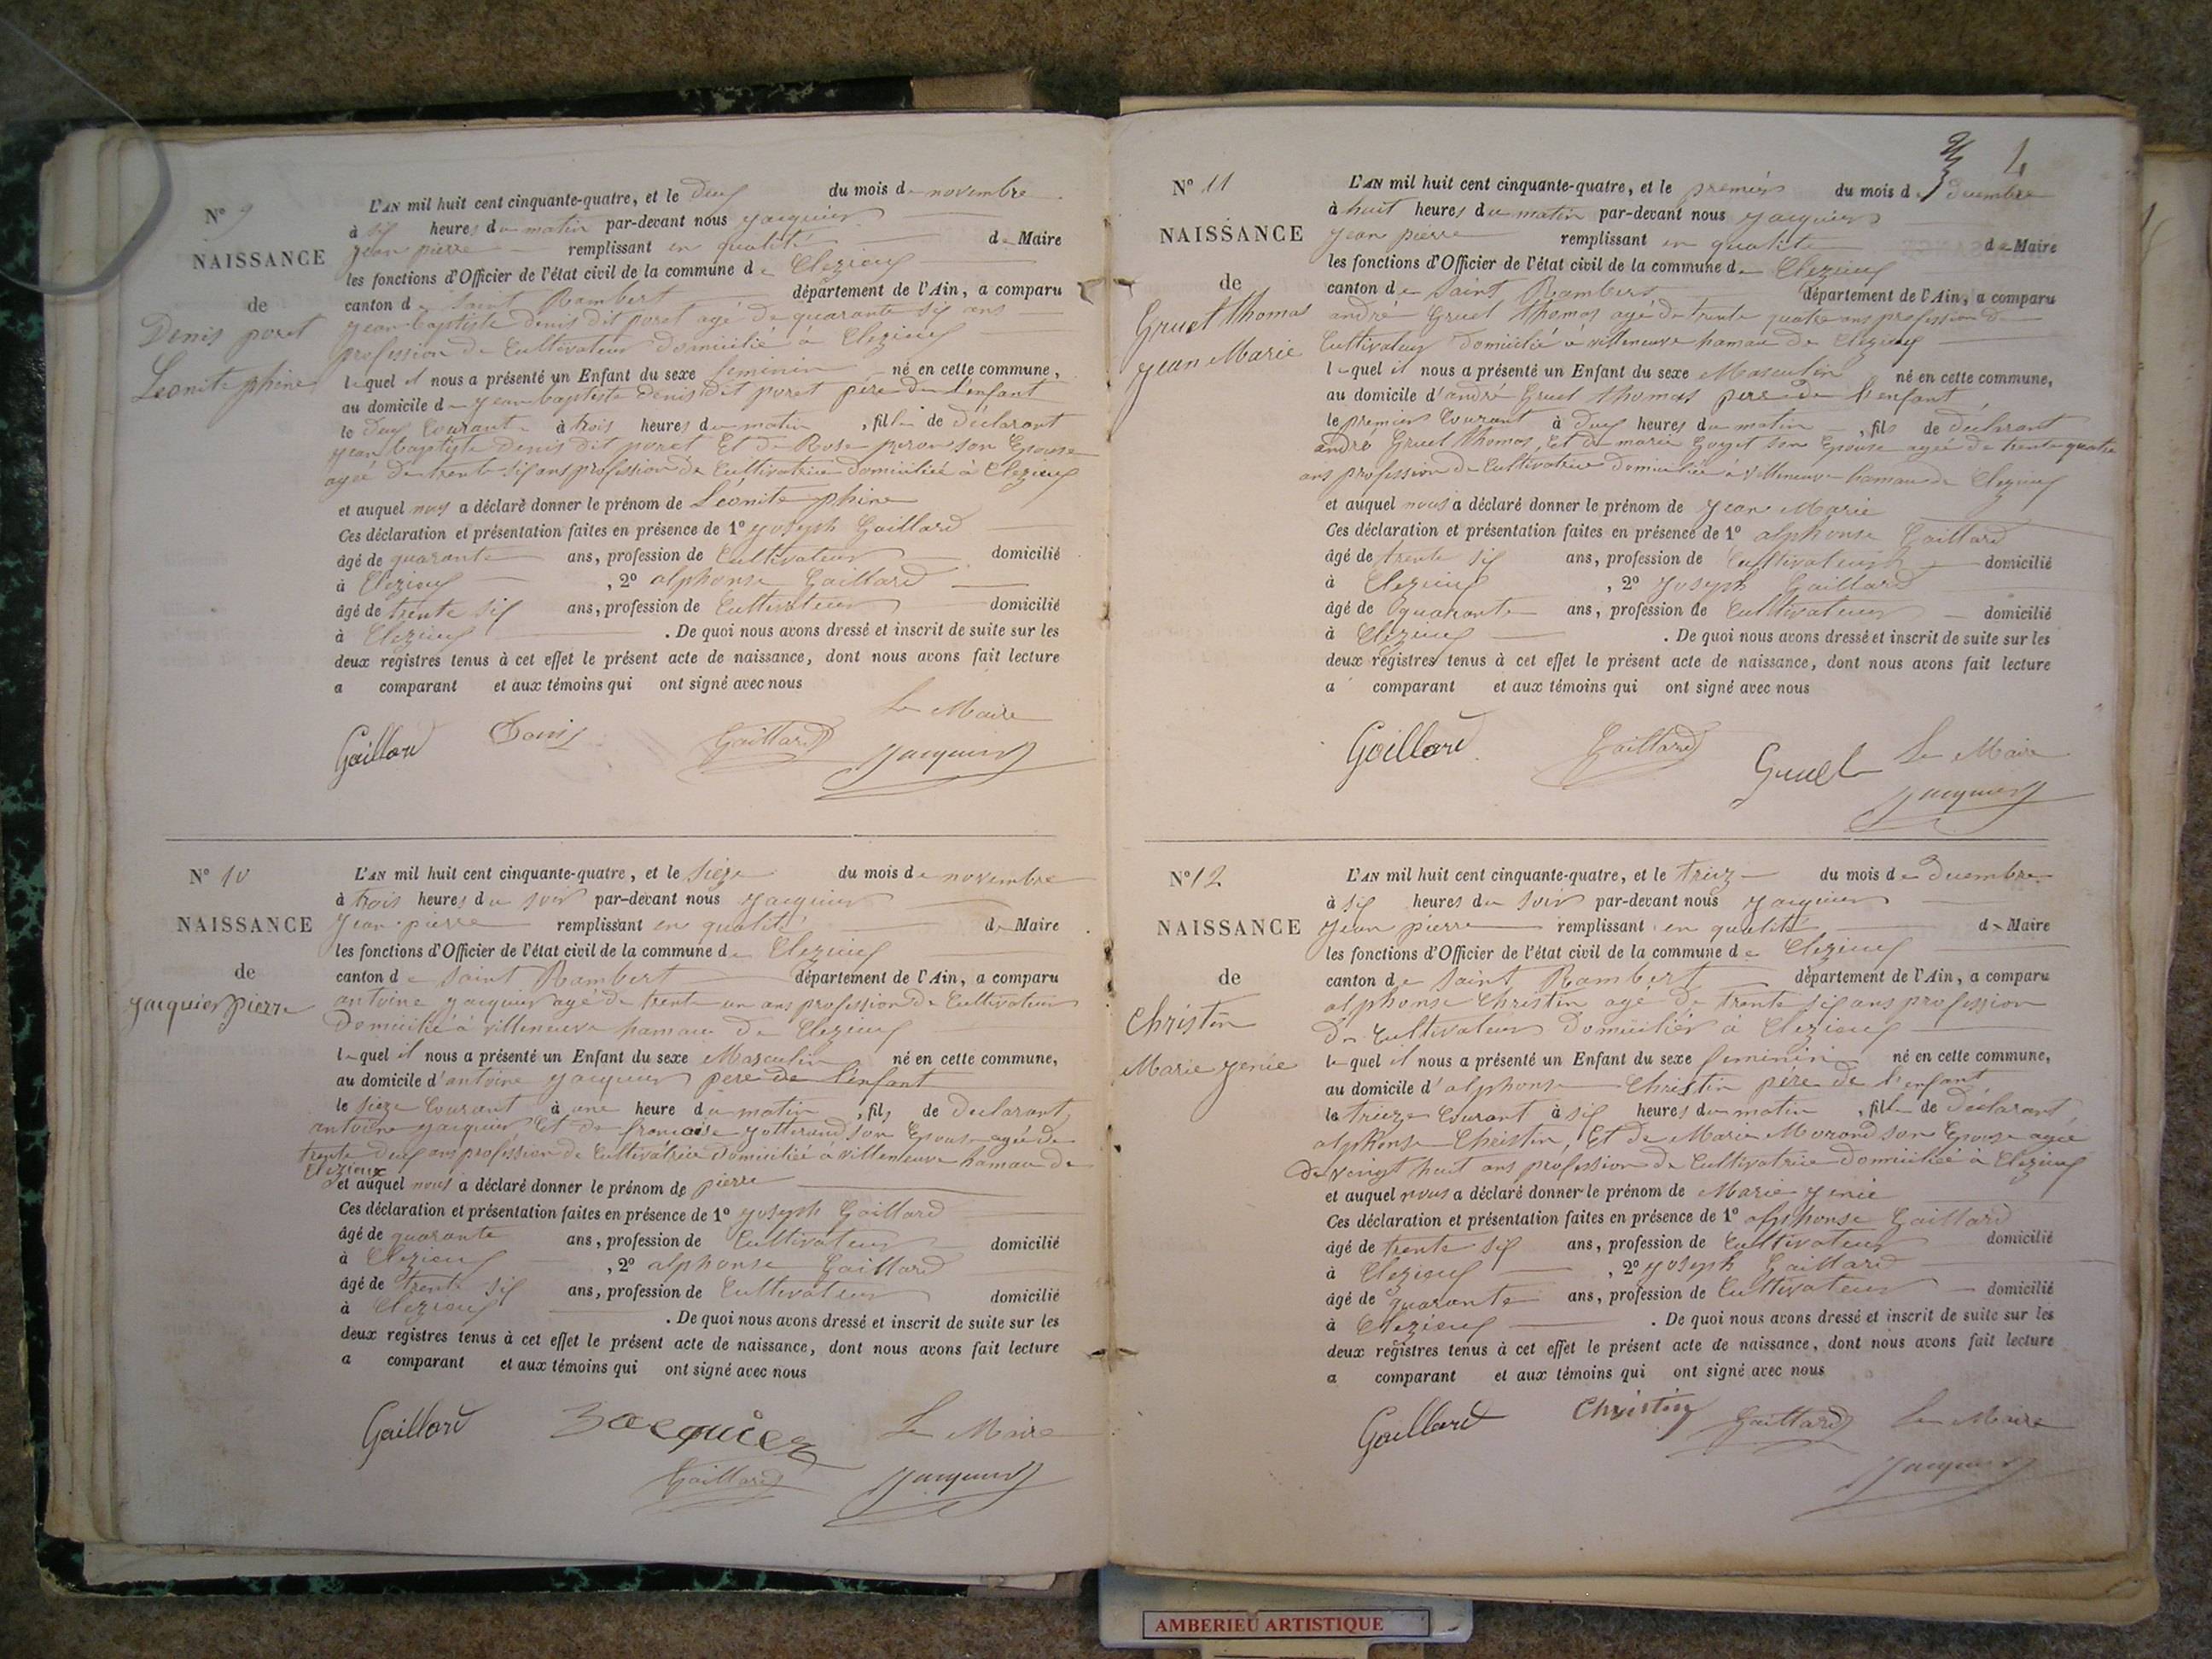 N° 9
NAISSANCE
de
Denis poret
Leonite phine
L'AN mil huit cent cinquante-quatre, et le deux du mois de novembre
à six heures du matin par-devant nous jacquier
jean pierre remplissant en qualité de Maire
les fonctions d'Officier de l'état civil de la commune de Clezieux
canton de Saint Rambert département de l'Ain, a comparu
jean baptiste denis dit poret agé de quarante six ans
profession de Cultivateur domicilié à Clezieux
lequel il nous a présenté un Enfant du sexe feminin né en cette commune,
au domicile de jean baptiste denis dit poret père de l'enfant
le deux Courant à trois heures du matin, fille de déclarant
jean baptiste denis dit poret Et de Rose peron son Epouse
agée de trente six ans profession de Cultivatrice domiciliée à Clezieux
et auquel nous a déclaré donner le prénom de Léonite phine
Ces déclaration et présentation faites en présence de 1° joseph Gaillard
âgé de quarante ans, profession de Cultivateur domicilié
à Clezieux, 2° alphonse Gaillard
âgé de trente six ans, profession de Cultivateur domicilié
à Clezieux. De quoi nous avons dressé et inscrit de suite sur les
deux registres tenus à cet effet le présent acte de naissance, dont nous avons fait lecture
a comparant et aux témoins qui ont signé avec nous
Le Maire
Gaillard Denis Gaillard jacquier
N° 10
NAISSANCE
de
jacquier pierre
L'AN mil huit cent cinquante-quatre, et le sieze du mois de novembre
à trois heures du soir par-devant nous jacquier
jean pierre remplissant en qualité de Maire
les fonctions d'Officier de l'état civil de la commune de Clezieux
canton de Saint Rambert département de l'Ain, a comparu
antoine jacquier agé de trente un ans profession de Cultivateur
domicilié à villeneuve hamau de Clezieux
lequel il nous a présenté un Enfant du sexe Masculin né en cette commune,
au domicile d'antoine jacquier pere de l'enfant
le sieze Courant à une heure du matin, fils de declarant
antoine jacquier Et de francoise jotterand son Epouse agée de
trente deux ans profession de Cultivatrice domiciliée à villeneuve hamau de
Clezieux
et auquel nous a déclaré donner le prénom de pierre
Ces déclaration et présentation faites en présence de 1° joseph Gaillard
âgé de quarante ans, profession de Cultivateur domicilié
à Clezieux, 2° alphonse Gaillard
âgé de trente six ans, profession de Cultivateur domicilié
à Clezieux. De quoi nous avons dressé et inscrit de suite sur les
deux registres tenus à cet effet le présent acte de naissance, dont nous avons fait lecture
a comparant et aux témoins qui ont signé avec nous
Gaillard Jacquier Le Maire
Gaillard jacquier
4
N° 11
NAISSANCE
de
Gruel thomas
jean Marie
L'AN mil huit cent cinquante-quatre, et le premier du mois de decembre
à huit heures du matin par-devant nous jacquier
jean pierre remplissant en qualité de Maire
les fonctions d'Officier de l'état civil de la commune de Clezieux
canton de Saint Rambert département de l'Ain, a comparu
andré Gruel thomas agé de trente quatre ans profession de
Cultivateur domicilié a villeneuve hamau de Clezieux
lequel il nous a présenté un Enfant du sexe Masculin né en cette commune,
au domicile d'andré Gruel thomas pere de l'enfant
le premier Courant à deux heures du matin, fils de déclarant
andré Gruel thomas, Et de marie Goyet son Epouse agée de trente quatre
ans profession de Cultivatrice domiciliée a villeneuve hamau de Clezieux
et auquel nous a déclaré donner le prénom de jean Marie
Ces déclaration et présentation faites en présence de 1° alphonse Gaillard
âgé de trente six ans, profession de Cultivateur domicilié
à Clezieux, 2° joseph Gaillard
âgé de quarante ans, profession de Cultivateur domicilié
à Clezieux. De quoi nous avons dressé et inscrit de suite sur les
deux registres tenus à cet effet le présent acte de naissance, dont nous avons fait lecture
a comparant et aux témoins qui ont signé avec nous
Gaillard Gaillard Gruel Le Maire
jacquier
N° 12
NAISSANCE
de
Christin
Marie jenie
L'AN mil huit cent cinquante-quatre, et le trieze du mois de decembre
à six heures du soir par-devant nous jacquier
jean pierre remplissant en qualité de Maire
les fonctions d'Officier de l'état civil de la commune de Clezieux
canton de Saint Rambert département de l'Ain, a comparu
alphonse Christin agé de trente six ans profession
de Cultivateur domicilier à Clezieux
lequel il nous a présenté un Enfant du sexe feminin né en cette commune,
au domicile d'alphonse Christin père de l'enfant
le trieze Courant à six heures du matin, fille de déclarant
alphonse Christin, Et de Marie Morand son Epouse agée
de vengt huit ans profession de Cultivatrice domiciliée à Clezieux
et auquel nous a déclaré donner le prénom de Marie jenie
Ces déclaration et présentation faites en présence de 1° alphonse Gaillard
âgé de trente six ans, profession de Cultivateur domicilié
à Clezieux, 2° joseph Gaillard
âgé de quarante ans, profession de Cultivateur domicilié
à Clezieux. De quoi nous avons dressé et inscrit de suite sur les
deux registres tenus à cet effet le présent acte de naissance, dont nous avons fait lecture
a comparant et aux témoins qui ont signé avec nous
Gaillard Christin Gaillard Le Maire
jacquier
AMBERIEU ARTISTIQUE